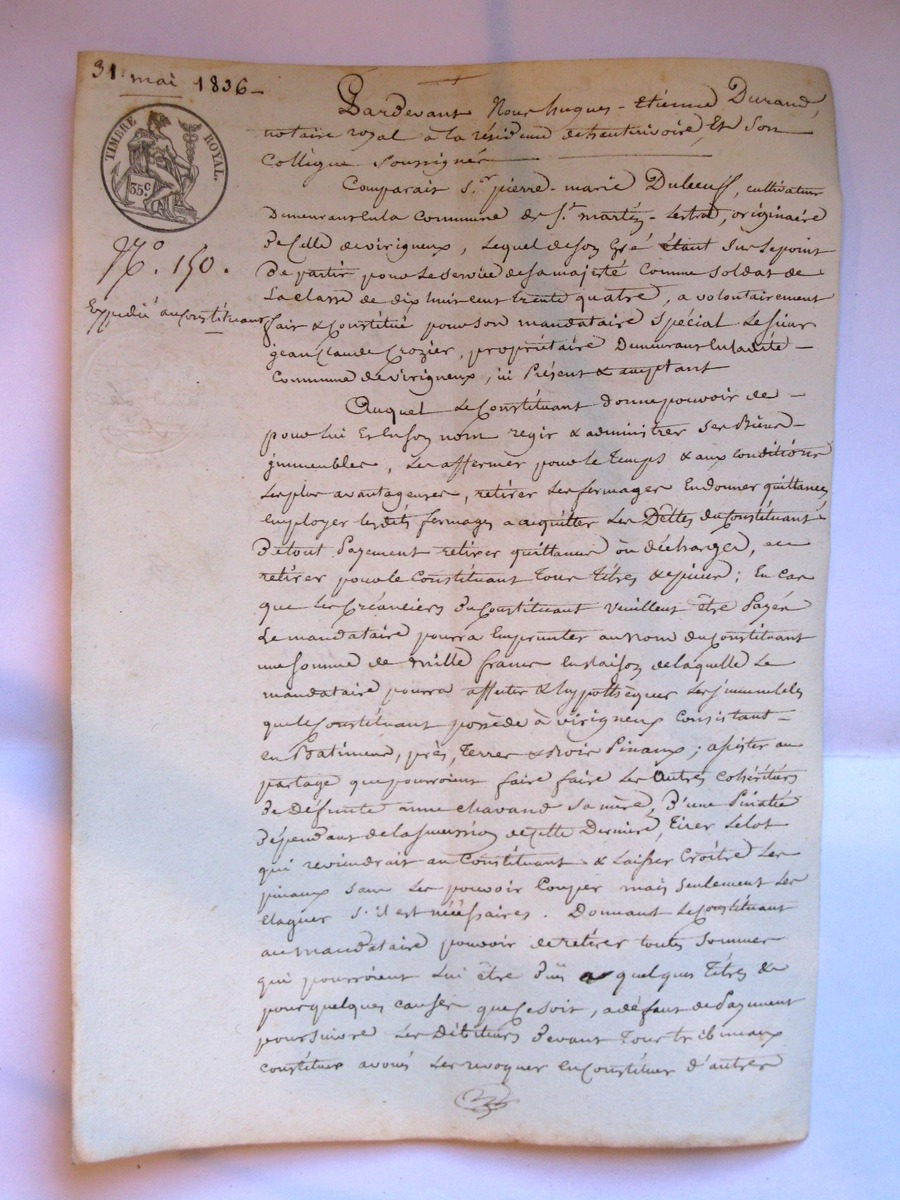 31 mai 1836 -
TIMBRE ROYAL.
35c.
N.o 150.
Expédié au Constituant
Pardevant Nous hugues - Etienne Durand,
notaire royal à la résidence de hauterivoire, Et Son
Collègue Soussignés
Comparait S.r pierre - marie Duboeuf, cultivateur
Demeurant En la Commune de St. martin - Lestrat, originaire
De Celle de virigneux, Lequel de Son Gré étant Sur Le point
De partir pour Le Service de Sa majesté Comme Soldat de
La Classe de dix huit cent trente quatre, a volontairement
fait & Constitué pour Son mandataire Spécial Le Sieur
jean Claude Crozier, propriétaire Demeurant En Ladite -
Commune de virigneux, ici Présent & acceptant
Auquel Le Constituant Donne pouvoir de -
pour Lui Et En Son nom regir & administrer Ses Biens -
immeubles, Les affermer pour le temps & aux conditions
Les plus avantageuses, retirer Les fermages En donner quittances
employer lesdits fermages a acquitter Les Dettes du Constituant
De tout Payement retirer quittances ou décharges, en
retirer pour le Constituant Tous Titres & pièces ; En Cas
que Les Créanciers Du Constituant veuillent être Payés
Le mandataire pourra Emprunter au Nom du Constituant
une Somme de mille francs En Raison de laquelle Le
mandataire pourra affecter & hypothéquer Les immeubles
que le Constituant possède à virigneux Consistant -
en Batiment, près, Terres & Bois Pinaux ; assister au
partage que pourroient faire faire Les Autres cohéritiers
De Défunte anne chavand Sa mère, D'une Pinatée
Dépendant de la Succession de Celle Dernière, Tirer Le lot
qui reviendrait au Constituant & Laisser Croître Les
pinaux Sans Les pouvoir Couper mais Seulement Les
élaguer S'il est nécessaires. Donnant Le Constituant
au mandataire pouvoir de retirer toutes Sommes
qui pourroient Lui être Dûs a quelques Titres &
pour quelques causes que Ce Soit, a défaut de Payement
poursuivre Les Débiteurs Devant Tous tribunaux
constituer avoués Les revoquer en Constituer d'autres